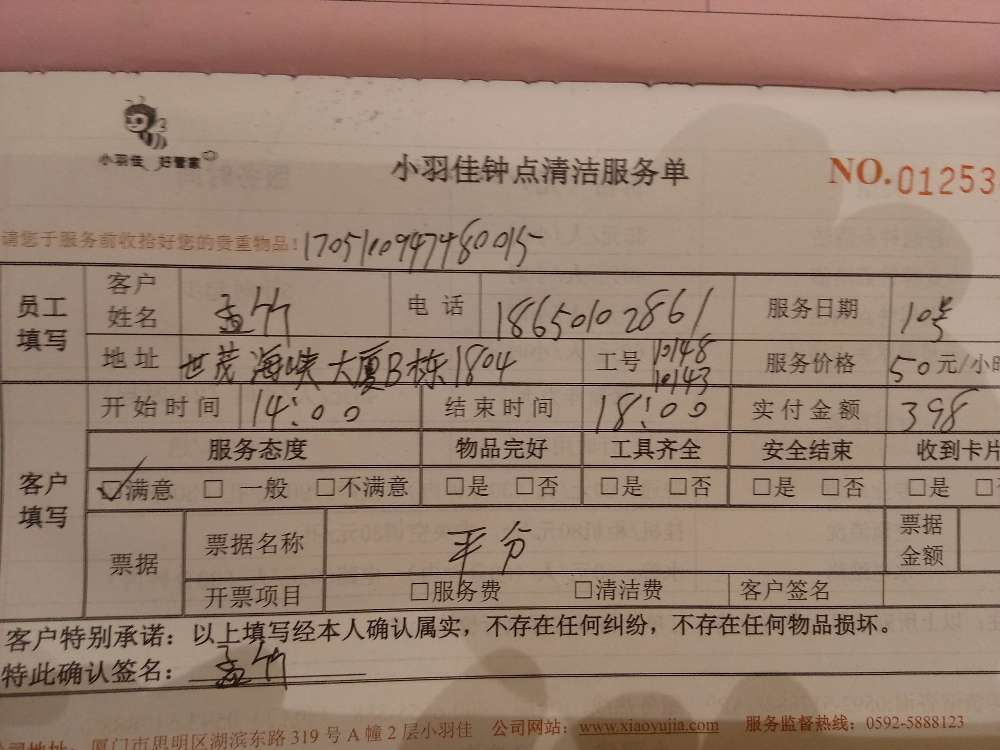 小羽佳 好管家
小羽佳钟点清洁服务单
NO.01253
请您于服务前收拾好您的贵重物品！1705110947480015
员工填写 客户姓名 孟竹 电话 18650102861 服务日期 10号
地址 世茂海峡大厦B栋1804 工号 10148 10143 服务价格 50元/小时
客户填写 开始时间 14:00 结束时间 18:00 实付金额 398
服务态度 物品完好 工具齐全 安全结束 收到卡片
☑满意 □一般 □不满意 □是 □否 □是 □否 □是 □否 □是
票据 票据名称 平分 票据金额
开票项目 □服务费 □清洁费 客户签名
客户特别承诺：以上填写经本人确认属实，不存在任何纠纷，不存在任何物品损坏。
特此确认签名：孟竹
公司地址：厦门市思明区湖滨东路319号A幢2层小羽佳 公司网站：www.xiaoyujia.com 服务监督热线：0592-5888123